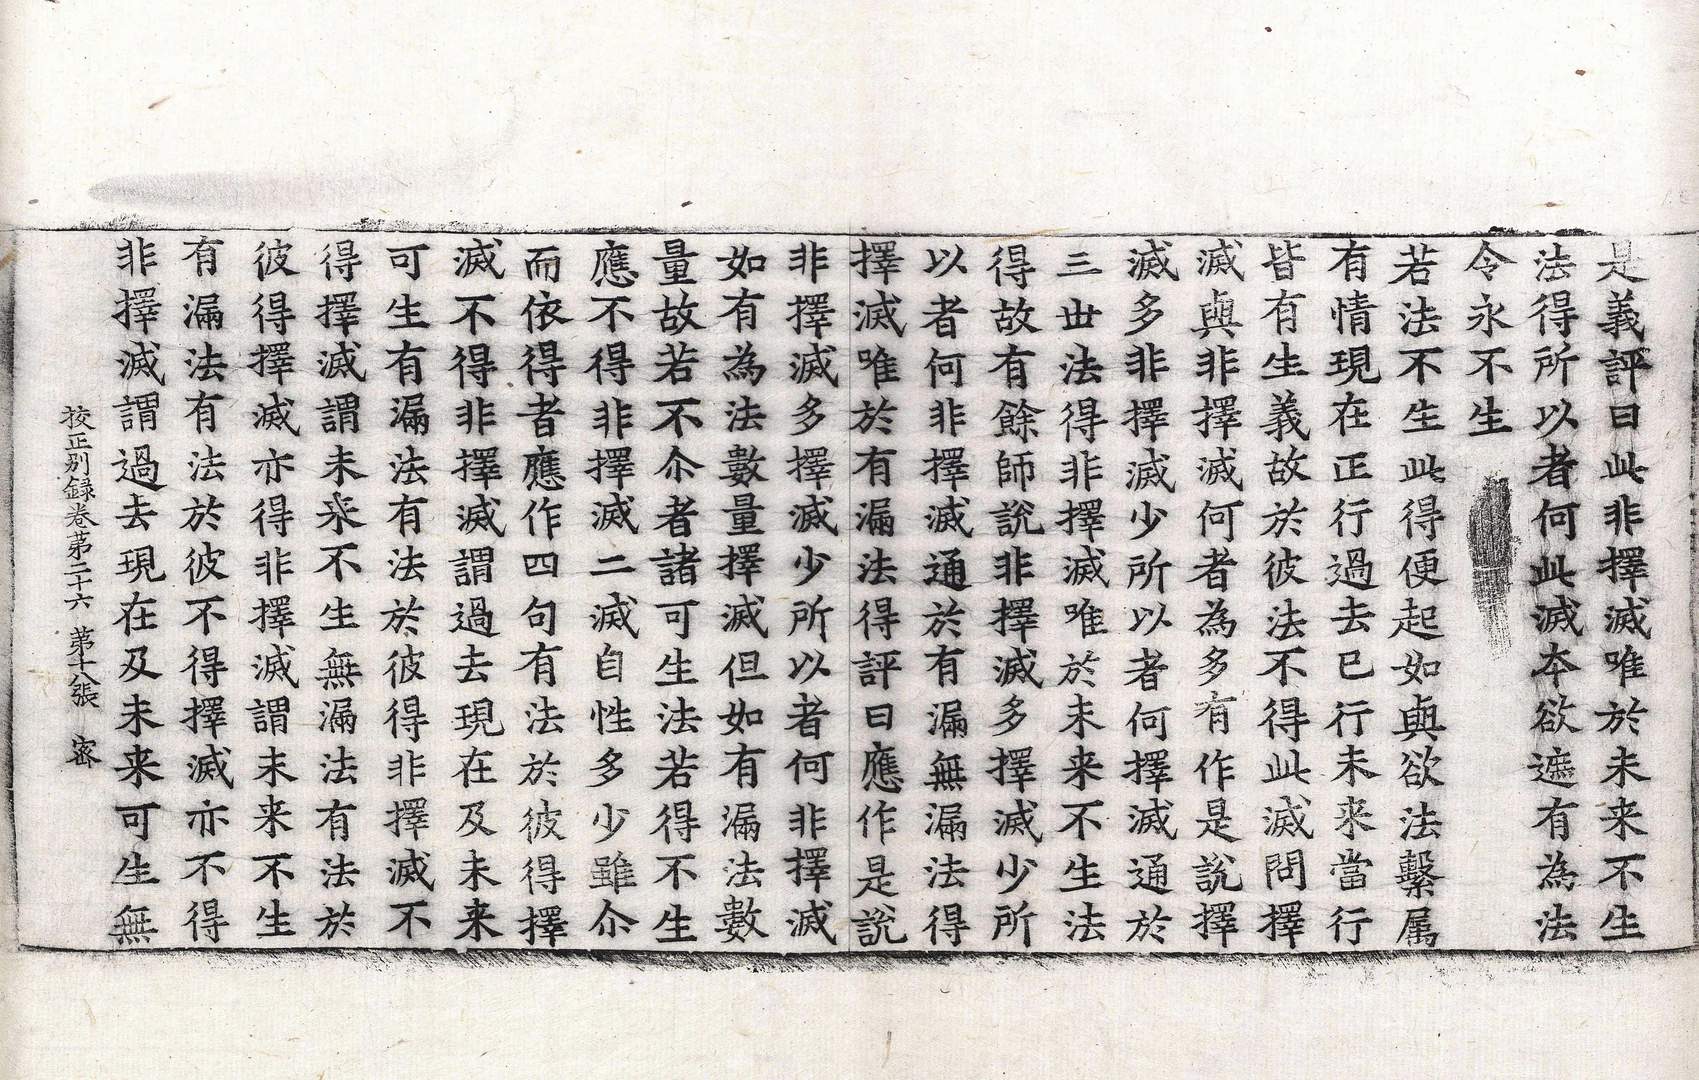 是義評曰此非擇滅唯於未来不生
法得所以者何此滅本欲遮有為法
令永不生
若法不生此得便起如與欲法繫属
有情現在正行過去已行未来當行
皆有生義故於彼法不得此滅問擇
滅與非擇滅何者為多有作是說擇
滅多非擇滅少所以者何擇滅通於
三世法得非擇滅唯於未来不生法
得故有餘師說非擇滅多擇滅少所
以者何非擇滅通於有漏無漏法得
擇滅唯於有漏法得評曰應作是說
非擇滅多擇滅少所以者何非擇滅
如有為法數量擇滅但如有漏法數
量故若不尒者諸可生法若得不生
應不得非擇滅二滅自性多少雖尒
而依得者應作四句有法於彼得擇
滅不得非擇滅謂過去現在及未来
可生有漏法有法於彼得非擇滅不
得擇滅謂未来不生無漏法有法於
彼得擇滅亦得非擇滅謂未来不生
有漏法有法於彼不得擇滅亦不得
非擇滅謂過去現在及未来可生無
挍正别録卷第二十六 第十八張 密